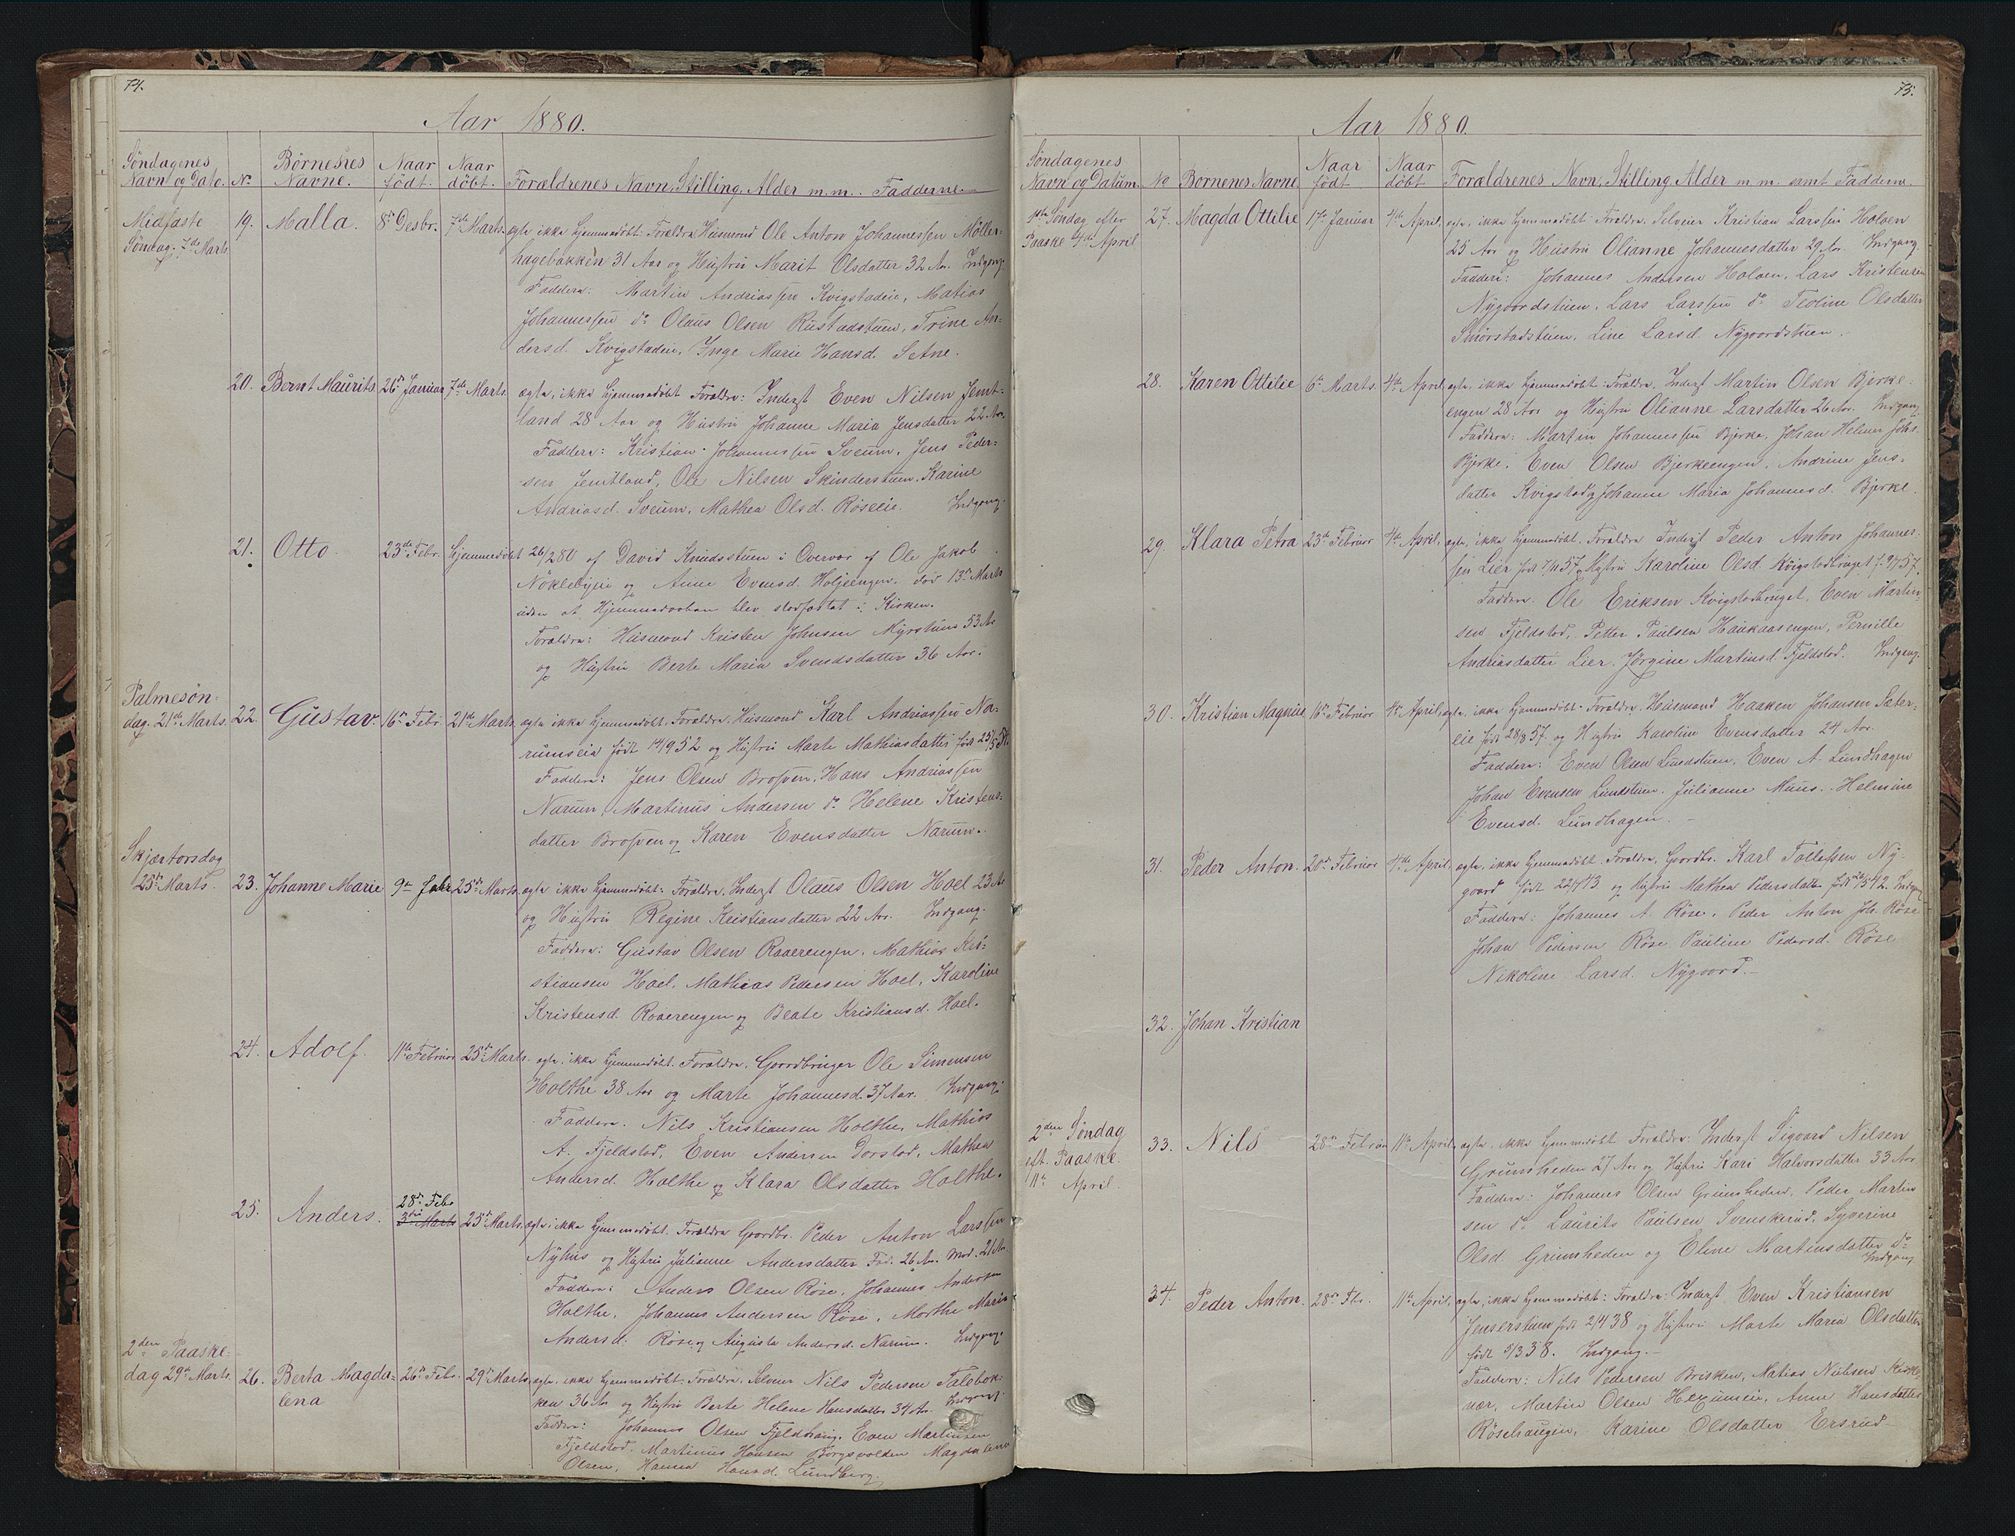 74.
Aar 1880.
Søndagenes Navn og Dato. No. Børnenes Navne. Naar født. Naar døbt. Forældrenes Navn, Stilling, Alder m.m. Fadderne
Midfaste Søndag. 7de Marts.
19. Malla. 8de Desbr. 7de Marts. ægte, ikke hjemmedøbt. Forældre Husmand Ole Anton Johannessen Møller-
hagebakken 31 Aar og Hustru Marit Olsdatter 32 Ar. Indgang.
Faddere: Martin Andriassen Kvigstadeie, Matias
Johannessen do Olaus Olsen Rustadstuen, Trine An-
dersd. Kvigstadeie, Inge Marie Hansd. Sætne.
20. Bernt Maurits 26de Januar 7de Marts. ægte, ikke hjemmedøbt Forældre: Inderst Even Nilsen Jemt-
land 28 Aar og Hustru Johanne Maria Jensdatter 22 Ar.
Faddere: Kristian Johannessen Sveum, Jens Peder-
sen Jemtland, Ole Nilsen Skinderstuen, Karine
Andriasd. Sveum, Mathea Olsd. Røseeie. Indgang.
21. Otto. 23de Febr. Hjemmedøbt 26/2 80 af David Knudsstuen i Overvær af Ole Jakob
Nøklebyeie og Anne Evensd. Holjeengen, død 13de Marts
uden at Hjemmedaaben blev stadfæstet i Kirken.
Forældre: Husmand Kristen Johnsen Myrstuen 53 Ar
og Hustru Berte Maria Svendsdatter 36 Aar.
Palmesøn-
dag. 21de Marts.
22. Gustav. 16de Febr 21de Marts. ægte ikke hjemmedøbt. Forældre, Husmand Karl Andriassen Na-
rumseie født 14/9 52 og Hustru Marte Mathiasdatter født 25/8 54.
Faddere: Jens Olsen Broþven, Hans Andriassen
Narum, Martinus Andersen do Helene Kristens-
datter Broþven og Karen Evensdatter Narum.
Skjærtorsdag
25de Marts.
23. Johanne Marie 9de Febr 25de Marts. ægte ikke hjemmedøbt: Forældre, Inderst Olaus Olsen Hoel 23 Ar
og Hustru Regine Kristiansdatter 22 Ar. Indgang.
Faddere: Gustav Olsen Raaerengen, Mathias Kri-
stiansen Hoel, Mathias Pedersen Hoel, Karoline
Kristensd. Raaerengen og Beate Kristiansd. Hoel.
24. Adolf. 11te Februar 25de Marts. ægte, ikke hjemmedøbt. Forældre, Gaardbruger Ole Simensen
Holthe 38 Aar og Marte Johannesd. 37 Aar. Indgang.
Faddere. Nils Kristiansen Holthe, Mathias
A. Fjeldstad, Even Andersen Dorstad, Mathea
Andersd. Holthe og Klara Olsdatter Holthe.
25. Anders. 28de Febr 3die Marts 25de Marts. ægte, ikke hjemmedøbt. Forældre Gaardbr. Peder Anton Larssen
Nyhus og Hustru Julianne Andersdatter Fad. 26 Ar. Mod. 21 Ar.
Faddere: Anders Olsen Røse, Johannes Andersen
Holthe, Johannes Andersen Røse, Marthe Maria
Andersd. Røse og Augusta Andersd. Narum. Indgang.
2den Paaske-
dag 29de Marts.
26. Berta Magda-
lena 26de Febr. 29de Marts. ægte, ikke hjemmedøbt: Forældre, Selveier Nils Pedersen Talebak-
ken 36 Ar og Hustru Berte Helene Hansdatter 34 Ar. Indgang.
Faddere: Johannes Olsen Fjeldhaug, Even Martinsen
Fjeldstad. Martinus Hansen Borgsvolden Magdalena
Olsen, Hanna Hansd. Lundberg.
75.
Aar 1880.
Søndagenes Navn og Datum. No Børnenes Navne Naar født Naar døbt. Forældrenes Navn, Stilling Alder m m samt Faddere.
1ste Søndag efter
Paaske 4de April
27. Magda Ottilie 17de Januar 4de April. ægte, ikke hjemmedøbt: Forældre, Selveier Kristian Larssen Holven
25 Aar og Hustru Olianne Johannesdatter 29 Ar. Indgang.
Faddere: Johannes Andersen Holven, Lars Kristensen
Nygaardstuen, Lars Larssen do Teoline Olsdatter
Smørstadstuen, Line Larsd. Nygaardstuen.
28. Karen Ottilie 6te Marts 4de April, ægte, ikke hjemmedøbt: Forældre, Inderst Martin Olsen Bjerke-
engen 28 Aar og Hustru Olianne Larsdatter 26 Ar. Indgang.
Faddere: Martin Johannessen Bjerke, Johan Helmer Johs.
Bjerke. Even Olsen Bjerkeengen, Andrine Jens-
datter Kvigstad og Johanne Maria Johannesd. Bjerke.
29 Klara Petra 23de Februar 4de April, ægte, ikke hjemmedøbt. Forældre Inderst Peder Anton Johannes-
sen Lier født 7/11 57 og Hustru Karoline Olsd Kvigstadbruget f. 9/7 57.
Faddere. Ole Eriksen Kvigstadbruget, Even Martin-
sen Fjeldstad, Petter Paulsen Haukaasengen, Pernille
Andriasdatter Lier. Jørgine Martinsd. Fjeldstad. Indgang.
30. Kristian Magnus 16de Februar 4de April, ægte, ikke hjemmedøbt. Forældre, Husmand Haaken Johansen Sæter-
eie født 28/8 57. og Hustru Karoline Evensdatter 24 Ar.
Faddere: Even Olsen Lundstuen, Even A. Lundhagen
Johan Evensen Lundstuen. Julianne Muus. Helmine
Evensd. Lundhagen.
31. Peder Anton. 20de Februar 4de April, ægte, ikke hjemmedøbt. Forældre, Gaardbr. Karl Tollefsen Ny-
gaard født 22/4 43 og Hustru Mathea Pedersdatter født 15/5 42. Indgang
Faddere: Johannes A. Røse, Peder Anton Joh. Røse
Johan Pedersen Røse Pauline Pedersd. Røse
Nikoline Larsd. Nygaard.
32. Johan Kristian
2den Søndag
eft. Paaske.
11te April.
33. Nils 28de Februar 11te April, ægte, ikke hjemmedøbt. Forældre. Inderst Sigvard Nilsen
Grimsheden 27 Aar og Hustru Kari Halvorsdatter 33 Ar.
Faddere: Johannes Olsen Grimsheden, Peder Martin
sen do Laurits Paulsen Svenskerud. Syverine
Olsd. Grimsheden og Eline Martinsdatter do
Indgang
34. Peder Anton. 28de Fbr. 11te April, ægte, ikke hjemmedøbt: Forældre: Inderst Even Kristiansen
Jenserstuen født 2/4 38 og Hustru Marte Maria Olsdatter
født 9/3 38. Indgang.
Faddere: Nils Pedersen Brisken, Matias Nielsen
Martin Olsen Hexumeie, Anne Hansdatter
Røsehaugen, Karine Olsdatter Ersrud